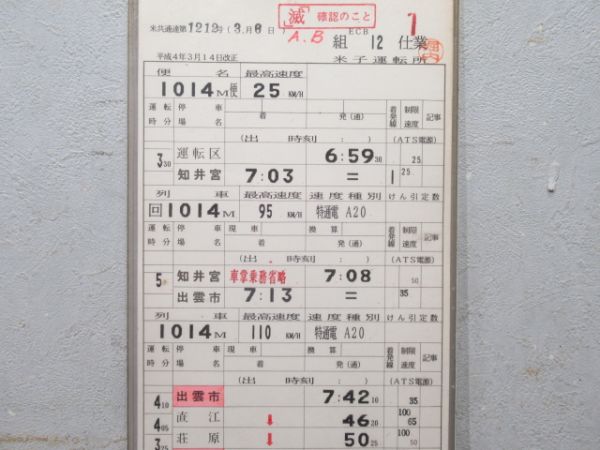 米共通達第1212号(3月6日)
滅 確認のこと
1
A.B
ECB
組 12 仕業
平成4年3月14日改正
米子運転所
便 名 最高速度
1014M便 25 KM/H
運転時分 停車場名 着 発(通) 着発線 制限速度 記事
(出 時刻 : ) (ATS電源)
3 30 運転区 6:59 30 25
知井宮 7:03 = 1
列 車 最高速度 速度種別 けん引定数
回1014M 95 KM/H 特通電 A20
運転時分 停車場名 現車 着 換算 発(通) 着発線 制限速度 記事
(出 時刻 : ) (ATS電源)
5 知井宮 車掌乗務省略 7:08 50
出雲市 7:13 = 35
列 車 最高速度 速度種別 けん引定数
1014M 110 KM/H 特通電 A20
運転時分 停車場名 現車 着 換算 発(通) 着発線 制限速度 記事
(出 時刻 : ) (ATS電源)
4 10 出雲市 7:42 10 35
4 05 直江 ↓ 46 20 100 65
3 25 荘原 ↓ 50 25 100 50